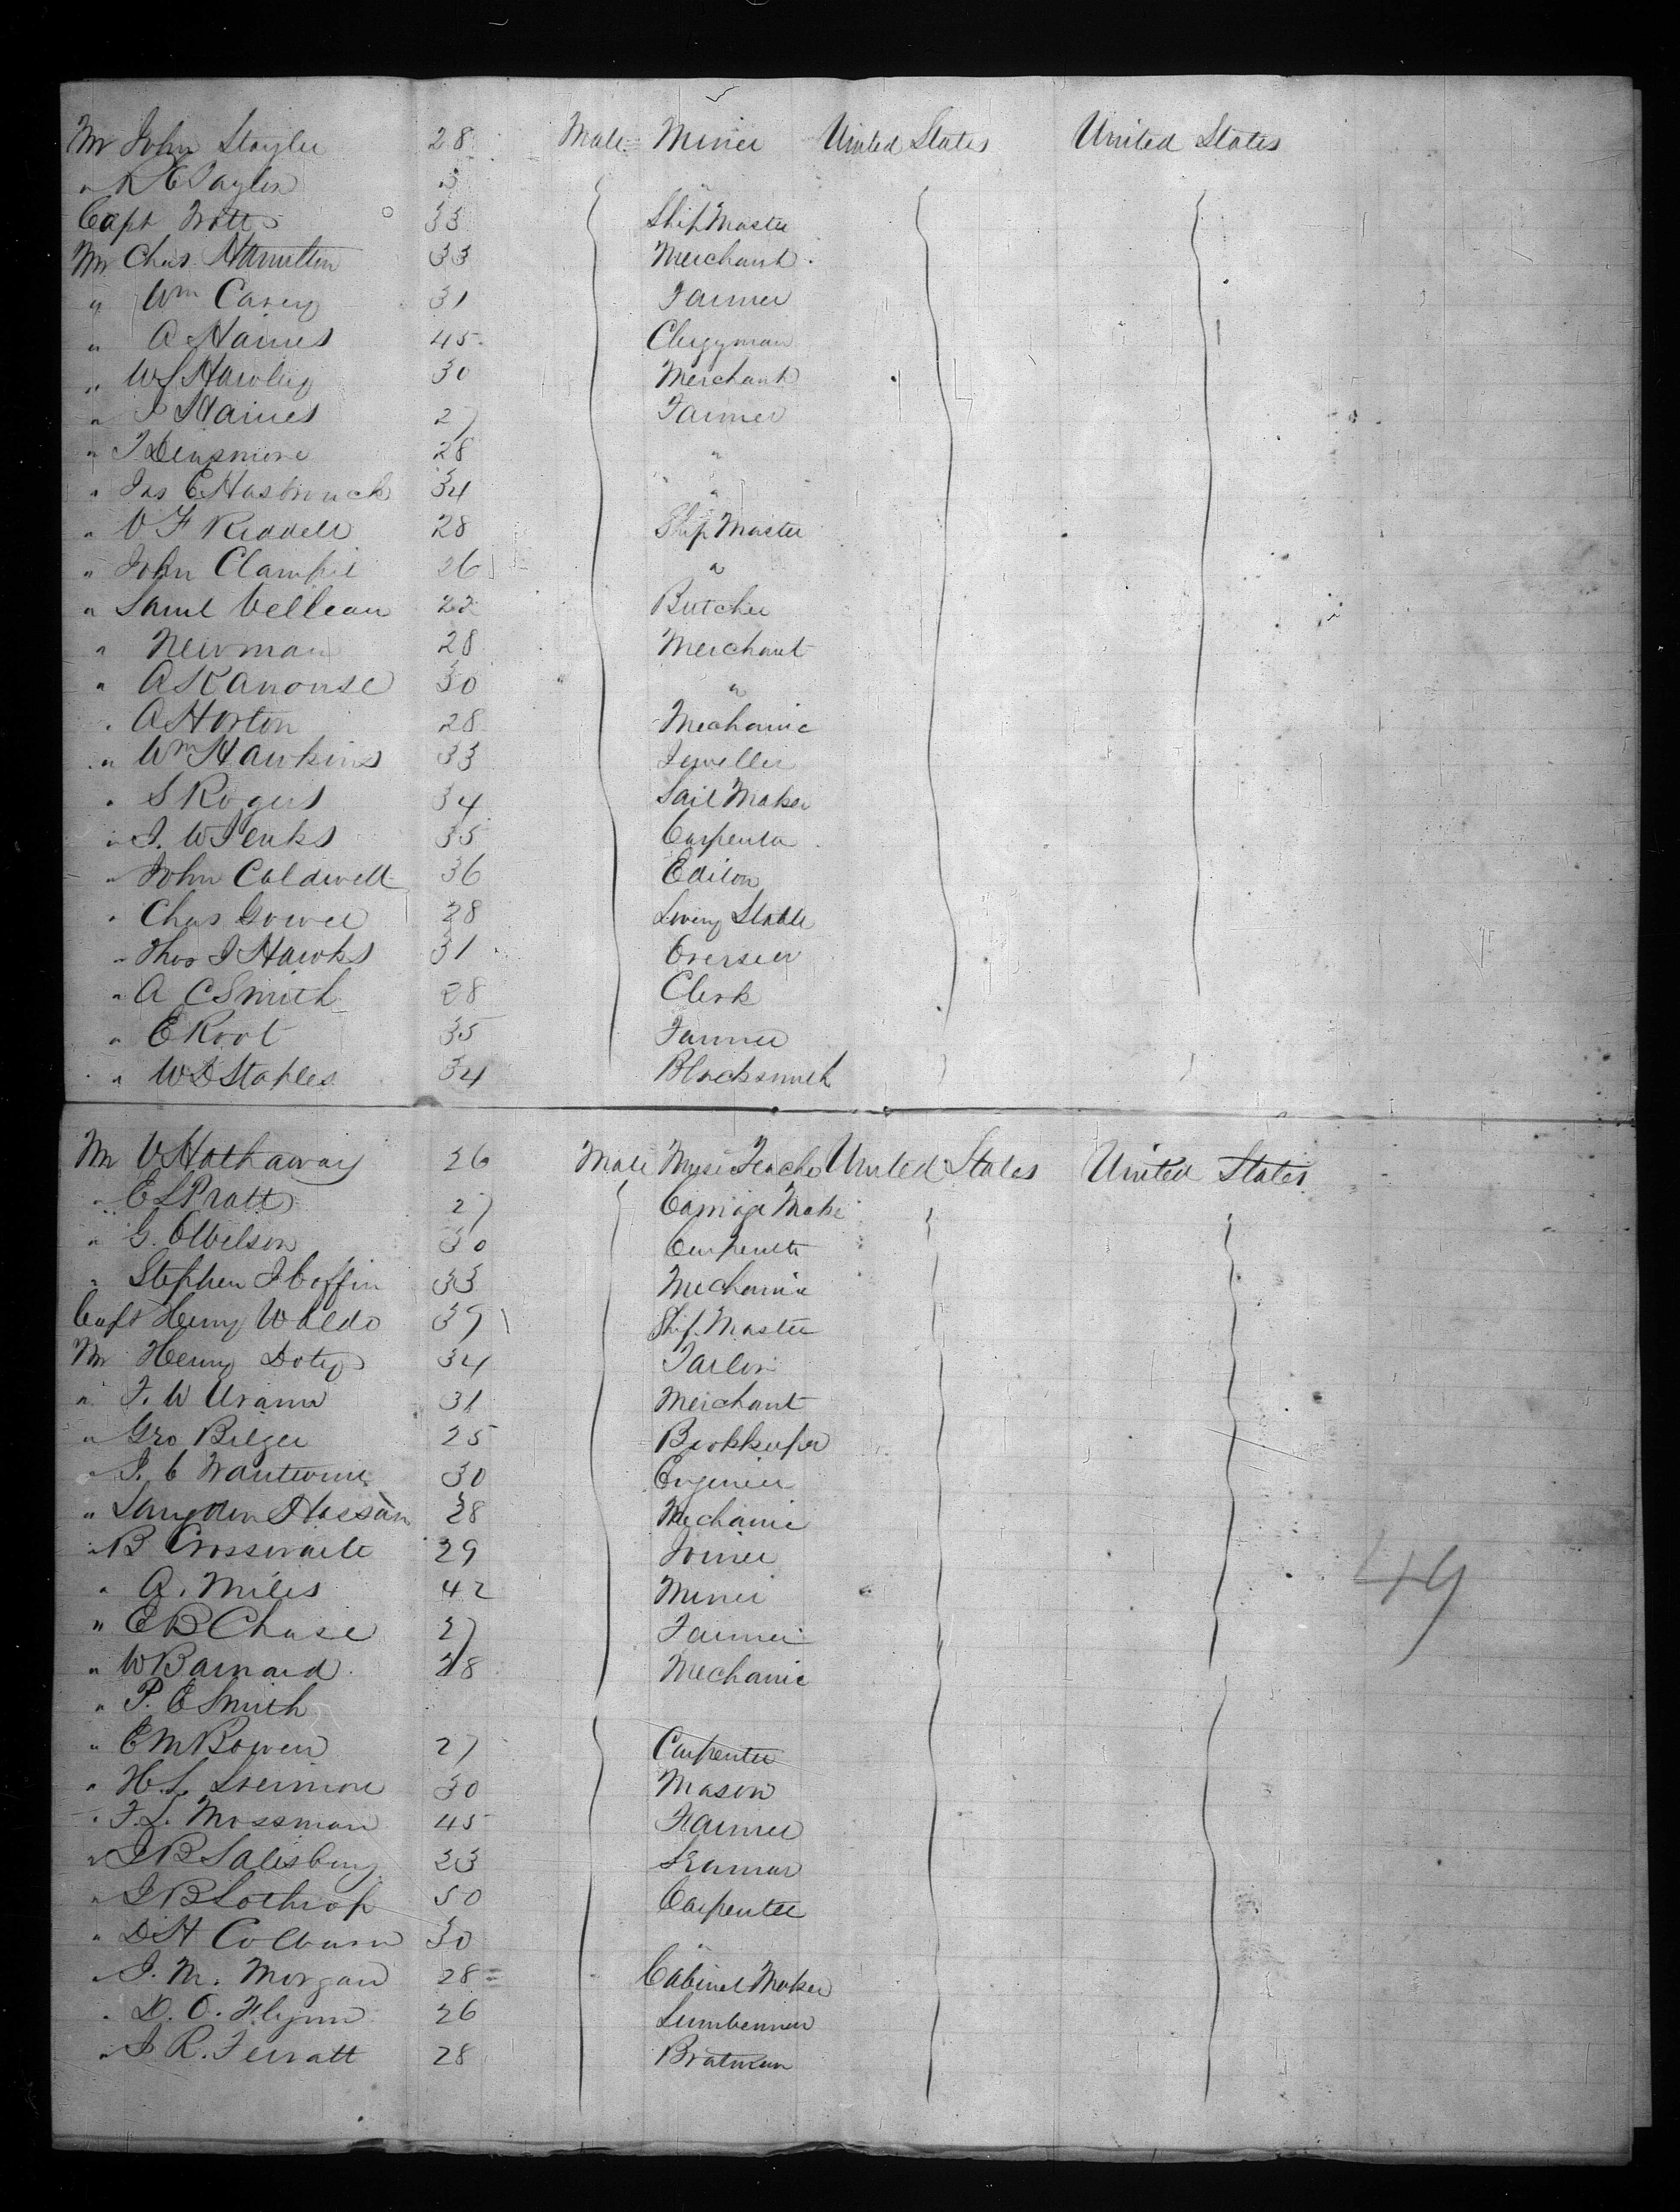 Mr John Stayler 28 Male Miner United States United States
" R C Taylor
Capt Watts 33 Ship Master
Mr Chas Hamilton 33 Merchant
" Wm Carey 31 Farmer
" A Haines 45 Clergyman
" W S Hawley 30 Merchant
" J Haines 27 Farmer
" T Densmore 28 "
" Jas C Hasbrouck 34 "
" V F Riddell 28 Ship Master
" John Clampit 26 "
" Saml Velleau 22 Butcher
" Newman 28 Merchant
" A Kanouse 30 "
" A Horton 28 Mechanic
" Wm Hawkins 33 Jeweller
" S Rogers 34 Sail Maker
" J. W Jenks 35 Carpenter
" John Caldwell 36 Editor
" Chas Gower 28 Livery Stable
" Thos J Hawks 31 Overseer
" A C Smith 28 Clerk
" E Root 35 Farmer
" W D Staples 34 Blacksmith
Mr V Hathaway 26 Male Music Teacher United States United States
" E S Pratt 27 Carriage Make
" G. O Wilson 30 Carpenter
" Stephen J Coffin 33 Mechanic
Capt Henry Waldo 37 Ship Master
Mr Henry Doty 34 Tailor
" F. W 31 Merchant
" Geo Bilger 25 Bookkeeper
" J. C Trautwine 30 Engineer
" Langdon Hassam 28 Mechanic
" B Crosswaite 29 Joiner
" A. Miles 42 Miner
" E B Chase 27 Farmer
" W Barnard 28 Mechanic
" P. E Smith
" E M Bowen 27 Carpenter
" H. L. Livermore 30 Mason
" F. L. Mossman 45 Farmer
" J B Salisbury 23 Seaman
" J B Lothrop 50 Carpenter
" D H Colburn 30
" J. M. Morgan 28 Cabinet Maker
" D. O. Flynn 26 Lumberman
" J R. Terratt 28 Boatman
49